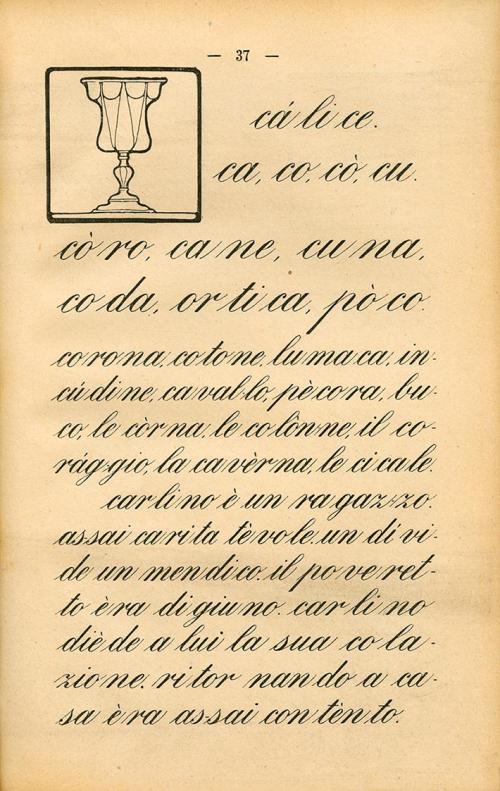 — 37 —
cá li ce.
ca, co, cò, cu.
cò ro, ca ne, cu na,
co da, or ti ca, pò co.
co ro na, co to ne, lu ma ca, in-
cú di ne, ca val lo, pè co ra, bu-
co, le còr na, le co lôn ne, il co-
rág-gio, la ca vèr na, le ci ca le.
car li no è un ra gaz-zo
as sai ca ri ta tè vo le. un dí vi-
de un men di co. il po ve ret-
to è ra di giu no. car li no
diè de a lui la sua co la-
zio ne. ri tor nan do a ca-
sa è ra as-sai con tèn to.